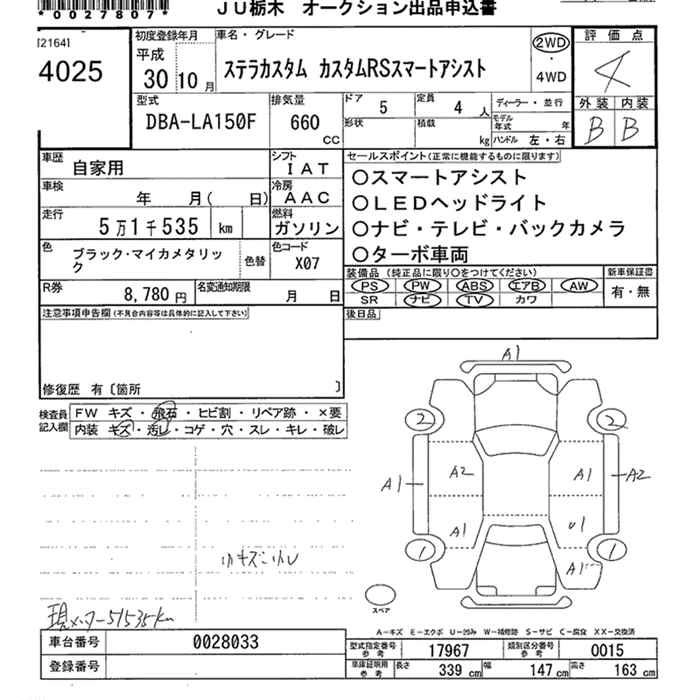 *0027807*
JU栃木 オークション出品申込書
[21641
4025
初度登録年月
平成
30 10 月
車名・グレード
ステラカスタム カスタムRSスマートアシスト
2WD
・
4WD
評価点
4
外装 内装
B B
型式
DBA-LA150F
排気量
660
CC
ドア 5
定員 4 人
形状
積載 kg
ディーラー・並行
モデル年式 年
ハンドル 左・右
車歴
自家用
シフト
IAT
車検
年 月( 日)
冷房
AAC
走行
5万1千535 km
燃料
ガソリン
色
ブラック・マイカメタリック
色替
色コード
X07
R券
8,780 円
名変通知期限
月 日
セールスポイント(正常に機能するものに限ります)
○スマートアシスト
○LEDヘッドライト
○ナビ・テレビ・バックカメラ
○ターボ車両
装備品(純正品に限り○をつけてください)
PS PW ABS エアB AW
SR ナビ TV カワ
新車保証書
有・無
後日品
注意事項申告欄(不具合内容等は具体的に記入して下さい)
修復歴 有〔箇所 〕
検査員記入欄
FW キズ・飛石・ヒビ割・リペア跡・×要
内装 キズ・汚レ・コゲ・穴・スレ・キレ・破レ
A1
2
2
A1
A2
A1
A2
A1
U1
1
1
A1
スペア
小キズ小凹
現メーター51535km
A-キズ E-エクボ U-凹み W-補修跡 S-サビ C-腐食 XX-交換済
車台番号 0028033
登録番号
型式指定番号 参考 17967
類別区分番号 参考 0015
車庫証明用 参考 長さ 339 cm 幅 147 cm 高さ 163 cm